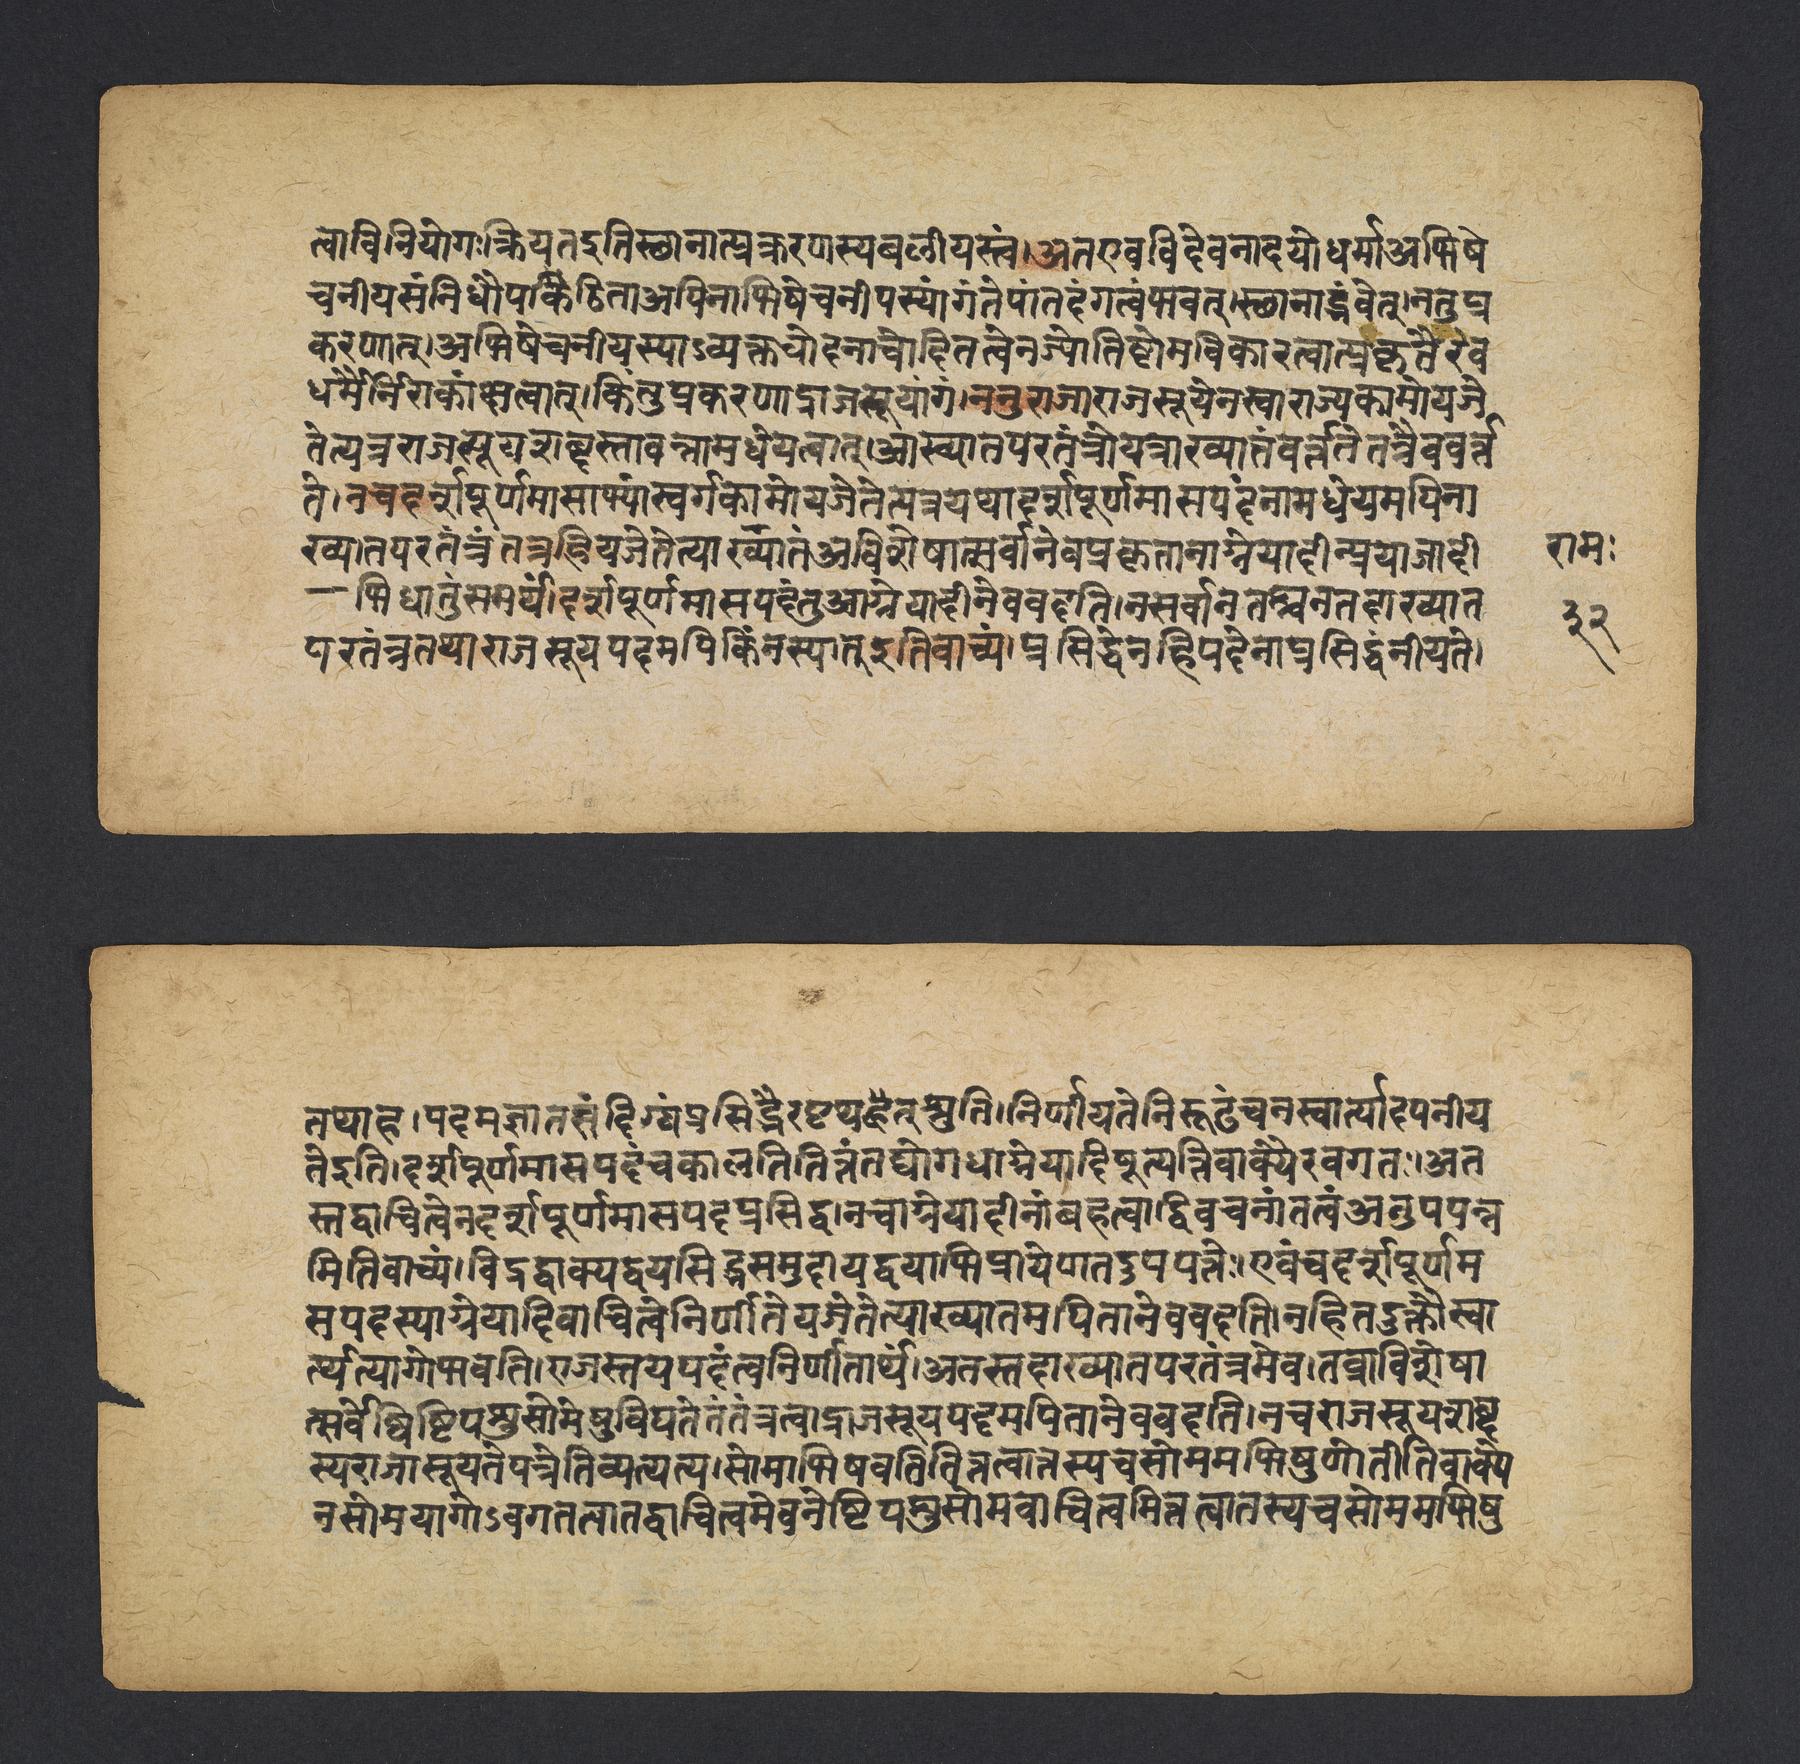 त्वाविनियोगःक्रियतइतिस्थानात्प्रकरणस्यबलीयस्त्वं।अतएवविदेवनादयोधर्माअभिषे
चनीयसंनिधौपकिंठिताअपिनाभिषेचनीपस्यांगंतेषांतदंगत्वंभवत्।स्थानाद्भवेत्।नतुप्र
करणात्।अभिषेचनीयस्याऽव्यक्तचोदनाचोदितत्वेनज्योतिष्टोमविकारत्वात्प्रकृतैरेव
धर्मैर्निराकांक्षत्वात्।किंतुप्रकरणाद्राजसूयांगं।ननुराजाराजसूयेनस्वाराज्यकामोयजे
तेत्यत्रराजसूयशब्दस्तावन्नामधेयत्वात्।आख्यातपरतंत्रोयत्राख्यातंवर्त्ततेतत्रैववर्त्त
ते।नचदर्शपूर्णमासाभ्यांस्वर्गकामोयजेतेत्यत्रयथादर्शपूर्णमासपदंनामधेयमपिना
ख्यातपरतंत्रंतत्रहियजेतेत्याख्यातंअविशेषात्सर्वानेवप्रकृतानाग्नेयादीन्प्रयाजादी
—भिधातुंसमर्थं।दर्शपूर्णमासपदंतुआग्नेयादीनेववदति।नसर्वानतश्चनतदाख्यात
परतंत्रतथाराजसूयपदमपिकिंनस्यात्इतिवाच्यं।प्रसिद्धेनहिपदेनाप्रसिद्धंनीयते।
रामः
३२
तथाह।पदमज्ञातसंदिग्धंप्रसिद्धैरष्टथक्श्रुति।निर्णीयतेनिरूढंचनस्वार्त्थादपनीय
तेइति।दर्शपूर्णमासपदंचकालतितितंतद्योगधाग्नेयादिषूत्पत्तिवाक्यैरवगतः।अत
स्तद्वाचित्वेनदर्शपूर्णमासपदप्रसिद्ध।नचाग्नेयादीनांबहुत्वाद्विवचनांतत्वंअनुपपन्न
मितिवाच्यं।विद्वद्वाक्यद्वयसिद्धसमुदायद्वयाभिप्रायेणतदुपपत्तेः।एवंचदर्शपूर्णम
सपदस्याग्नेयादिवाचित्वेनिर्णीतेयजेतेत्याख्यातमपितानेववदति।नहितदुक्तौस्वा
र्त्थत्यागोभवति।राजस्तयपदंत्वनिर्णीतार्थं।अतस्तदाख्यातपरतंत्रमेव।तच्चाविशेषा
त्सर्वेष्विष्टिपशुसोमेषुविपतेतंतंत्रत्वाद्राजसूयपदमपितानेववदति।नचराजसूयशब्द
स्यराजासूयतेपत्रेतिव्यत्यत्य।सोमाभिषवतितित्तत्वात्तस्यचसोममभिषुणोतीतिवाक्ये
नसोमयागोऽवगतत्वातद्वाचित्वमेवनेष्टिपशुसोमवाचित्वमित्तत्वातस्यचसोममभिषु